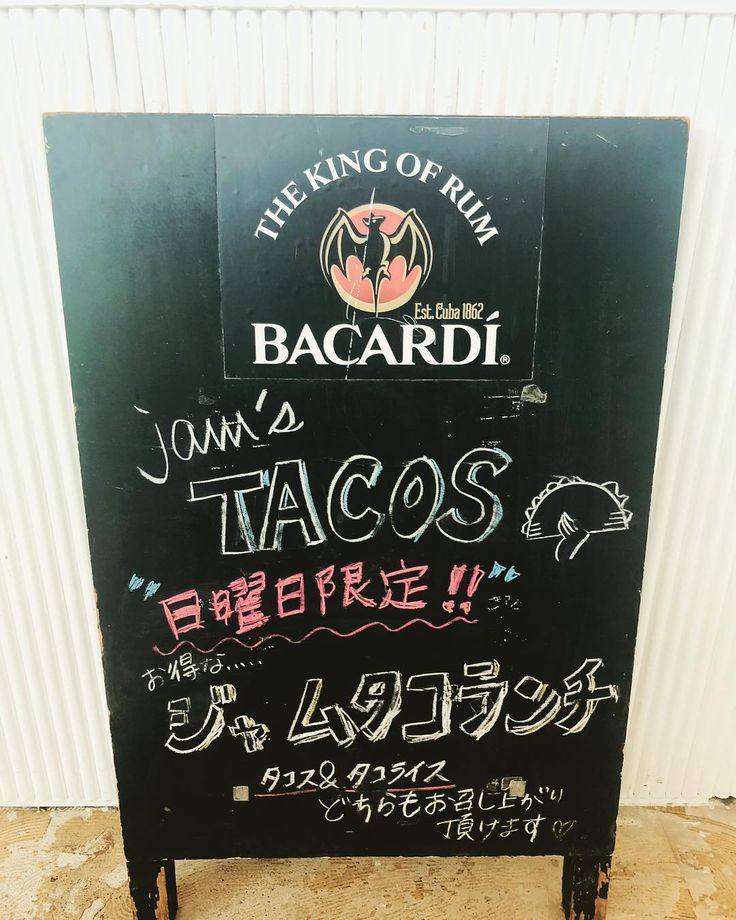 THE KING OF RUM
Est. Cuba 1862
BACARDÍ®
jam's
TACOS
"日曜日限定!!"
お得な.....
ジャムタコランチ
タコス& タコライス
どちらもお召し上がり
頂けます♡